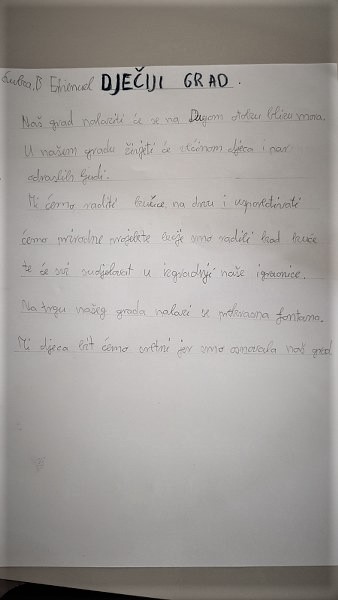 DJEČIJI GRAD.
Naš grad nalaziti će se na Dugom otoku blizu mora.
U našem gradu živjeti će većinom djeca i par
odraslih ljudi.
Mi ćemo raditi kućice na drvu i uspoređivati
ćemo prirodne
će svi sudjelovat u izgradnji naše igraonice.
Na trgu našeg grada nalazi se prekrasna fontana.
Mi djeca bit ćemo sretni jer smo osnovala naš grad